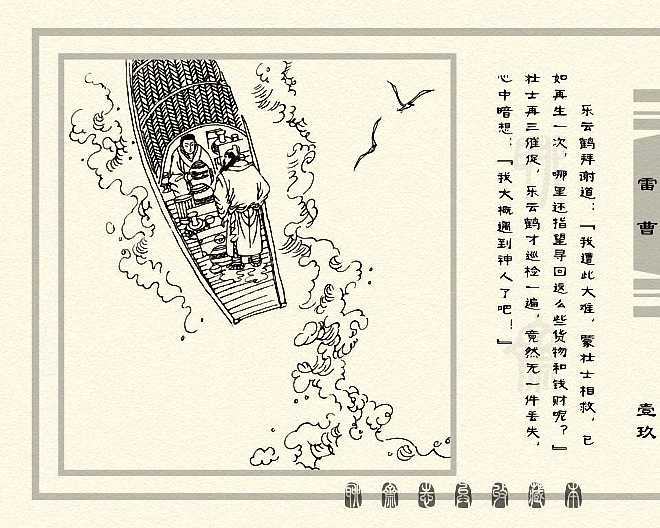 雷曹
壹玖
乐云鹤拜谢道:“我遭此大难,蒙壮士相救,已
如再生一次,哪里还指望寻回这么些货物和钱财呢?”
壮士再三催促,乐云鹤才巡检一遍,竟然无一件丢失,
心中暗想:“我大概遇到神人了吧!”